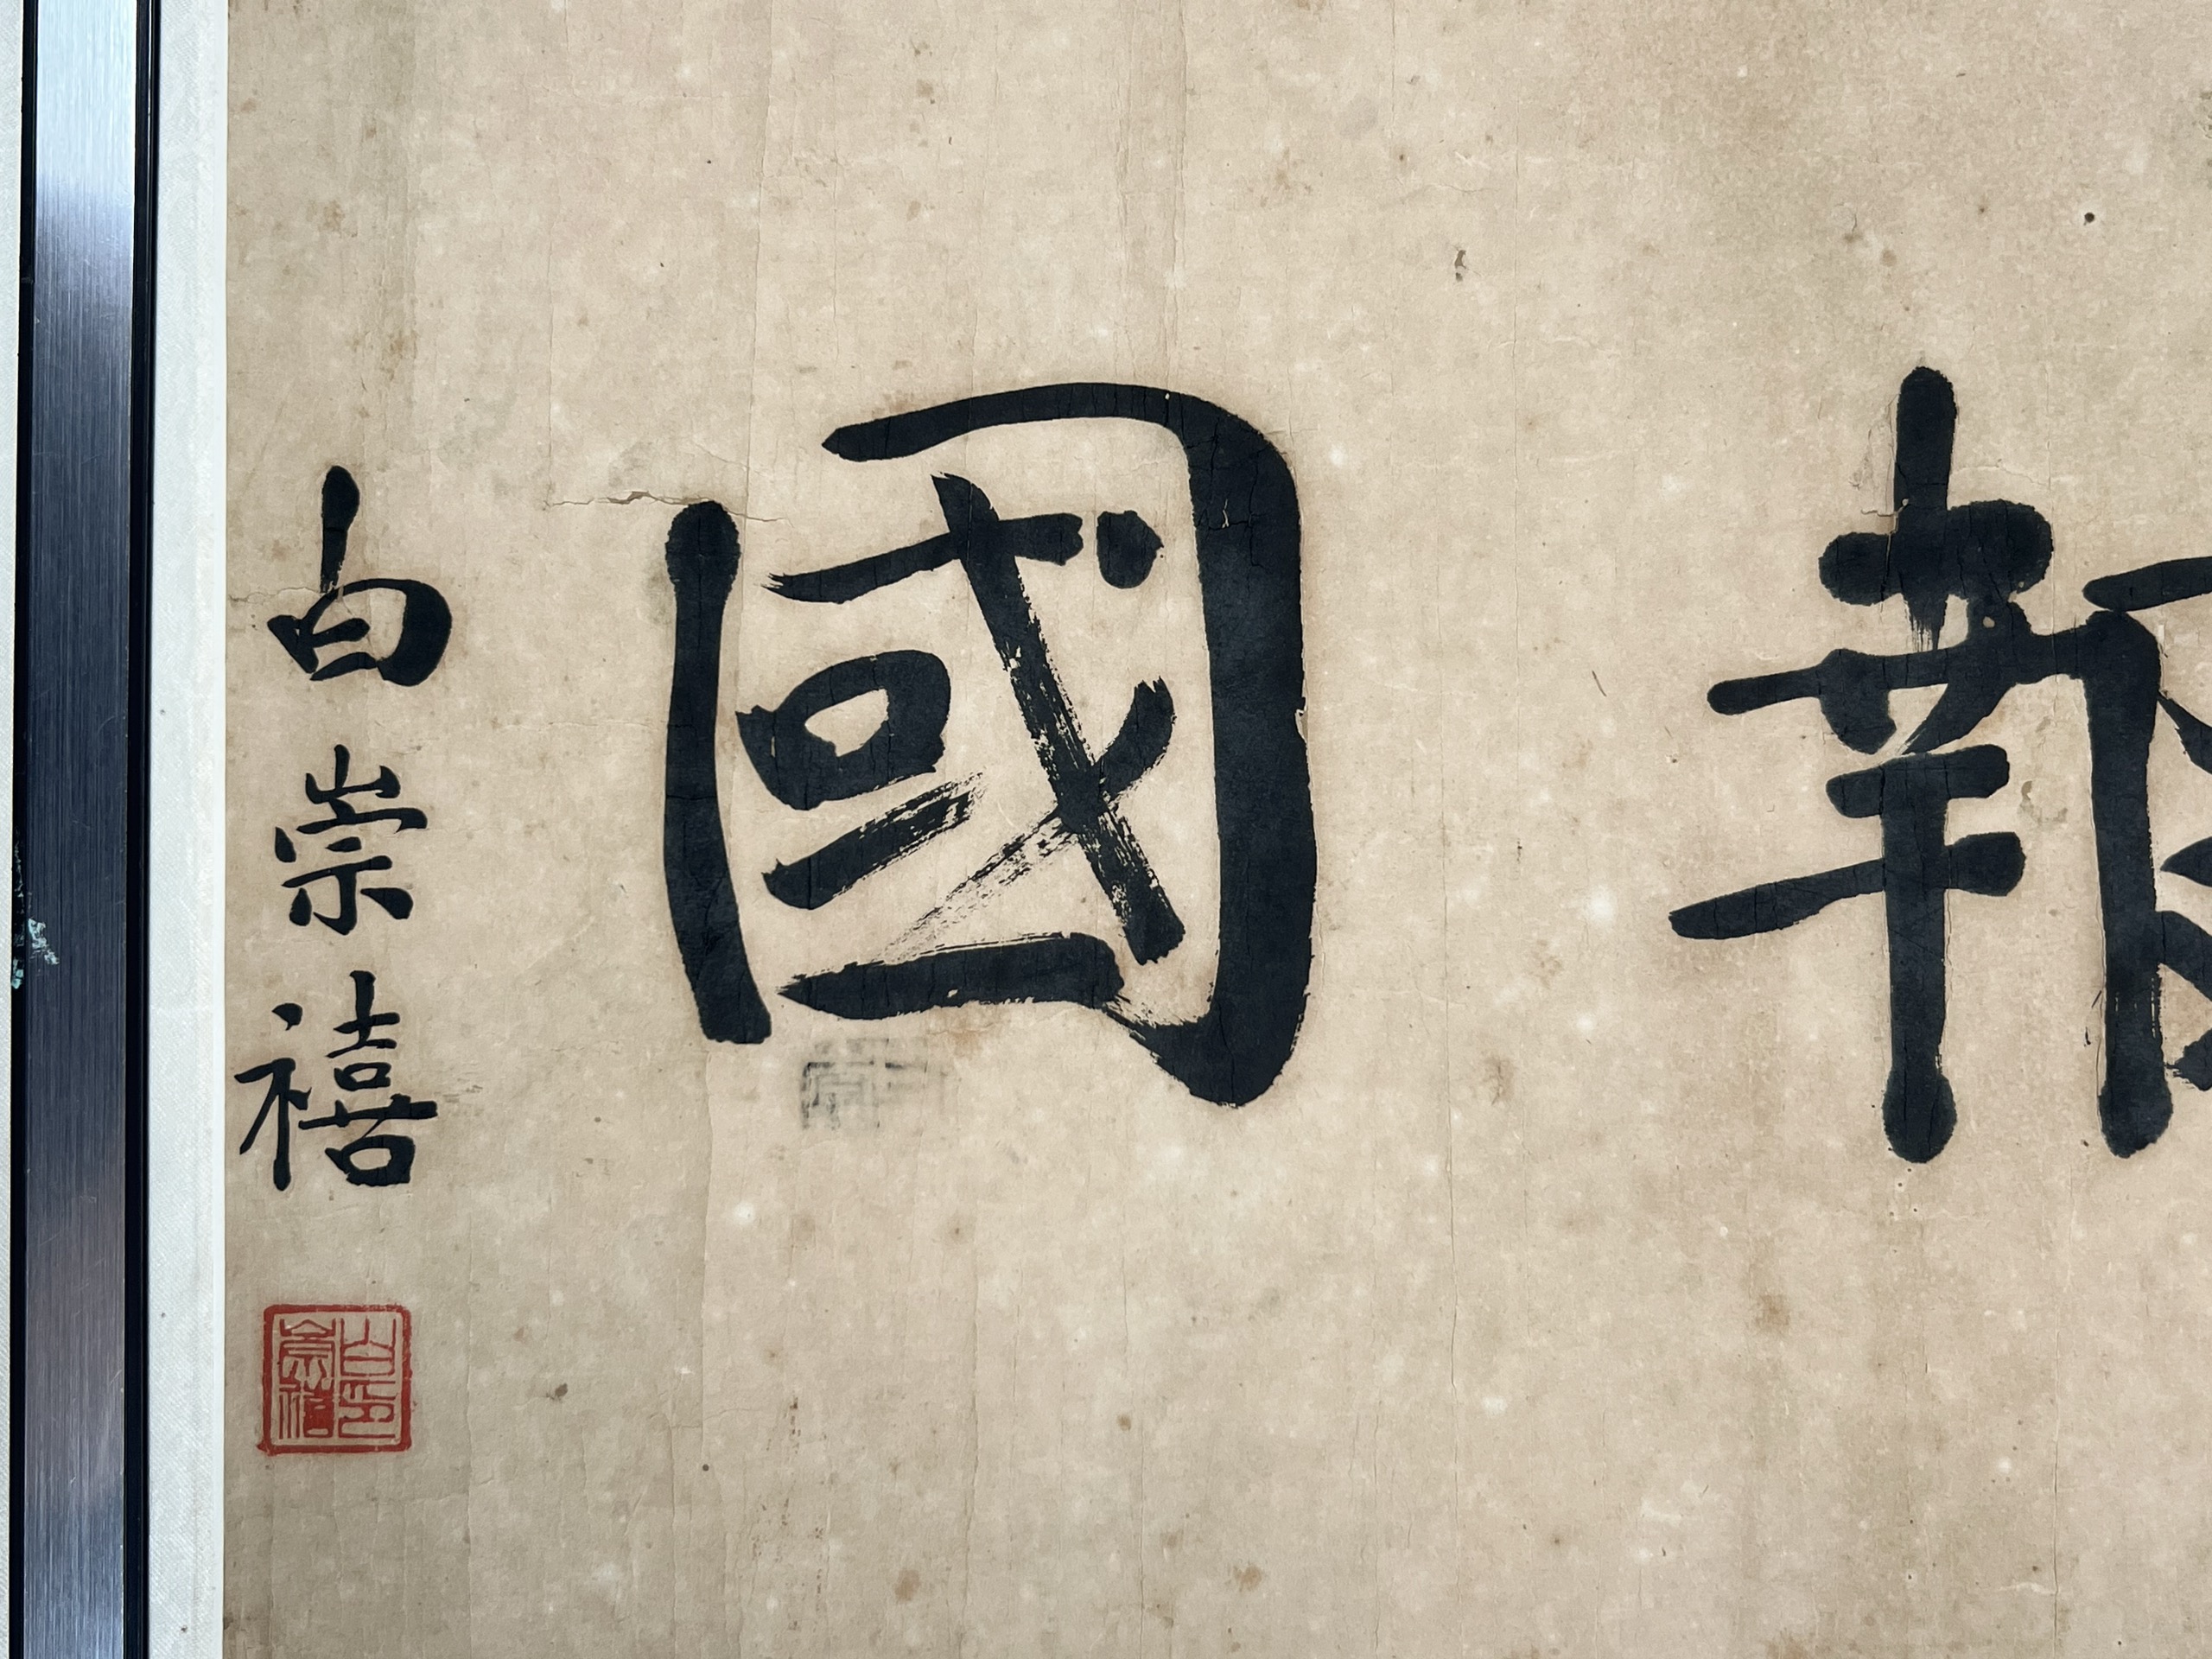 報國
白崇禧
白崇禧印